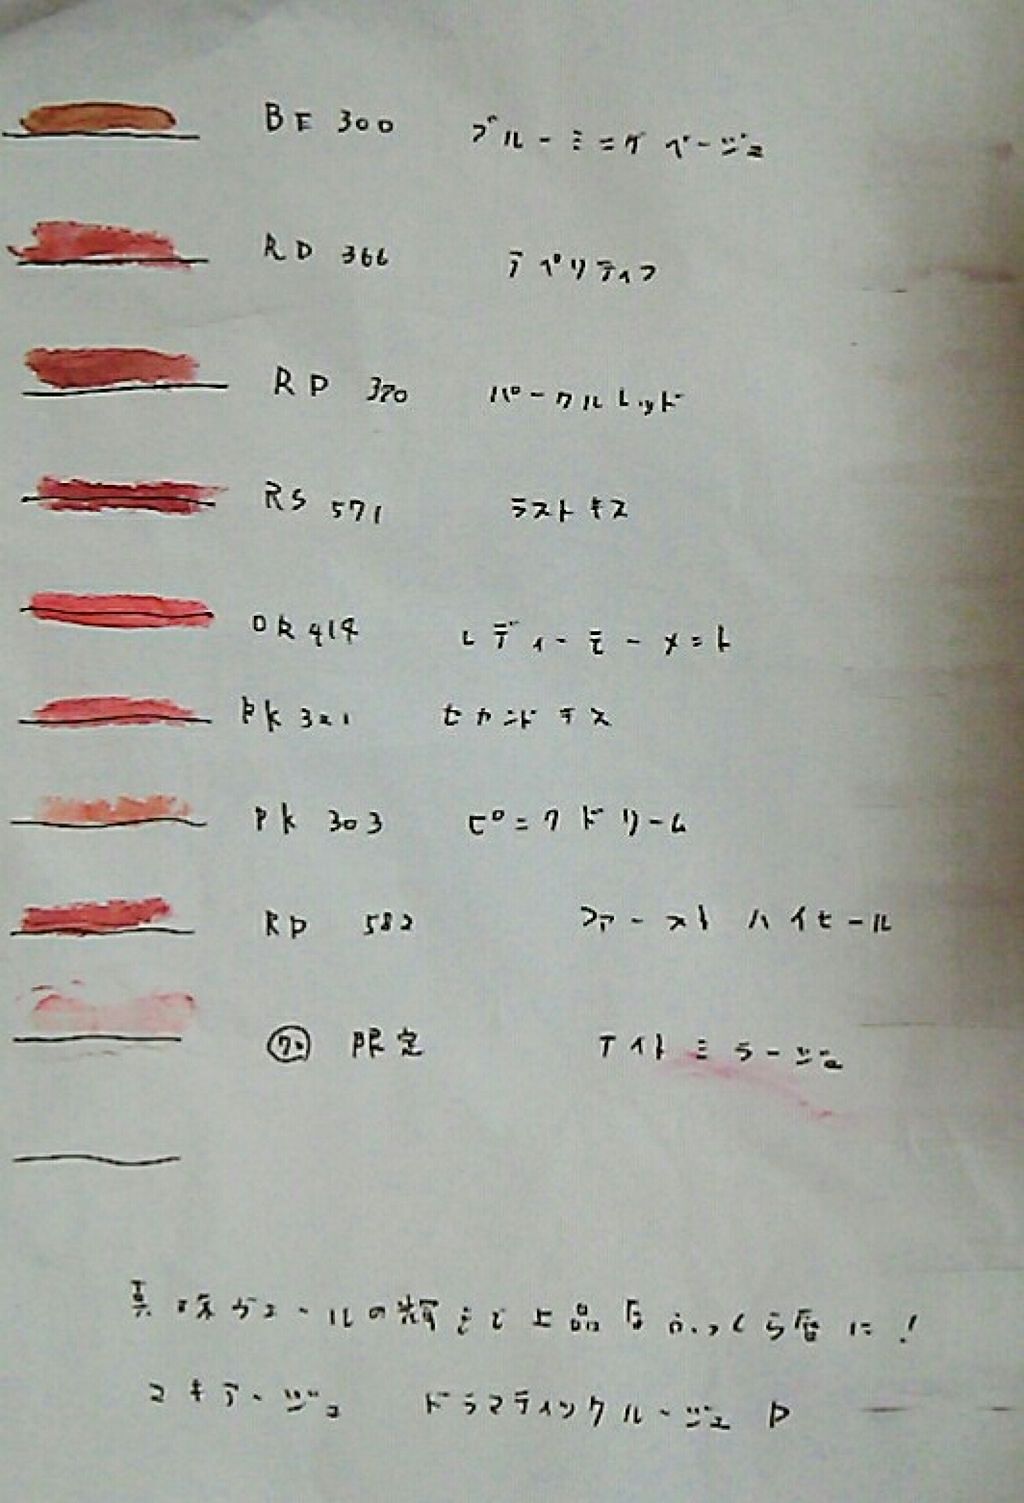 BE 300 ブルーミングベージュ
RD 366 アペリティフ
RD 370 パークルレッド
RS 571 ラストキス
OR 414 レディーモーメント
PK 321 セカンドキス
PK 303 ピンクドリーム
RD 582 ファーストハイヒール
限定 ナイトミラージュ
真珠ヴェールの輝きで上品なふっくら唇に!
マキアージュ ドラマティックルージュ P